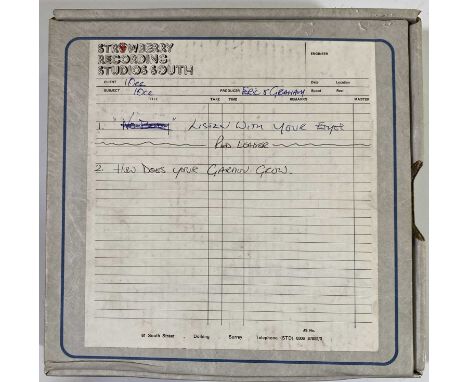 STRAWBERRY
RECORDING
STUDIOS SOUTH
ENGINEER
CLIENT 10cc Date Location
SUBJECT 10cc PRODUCER ERIC & GRAHAM Speed Reel
TITLE TAKE TIME REMARKS MASTER
1. "No Beddy" LISTEN WITH YOUR EYES
RED LEADER
2. HOW DOES YOUR GARDEN GROW.
AS No.
61 South Street . Dorking Surrey Telephone (STD) 0306